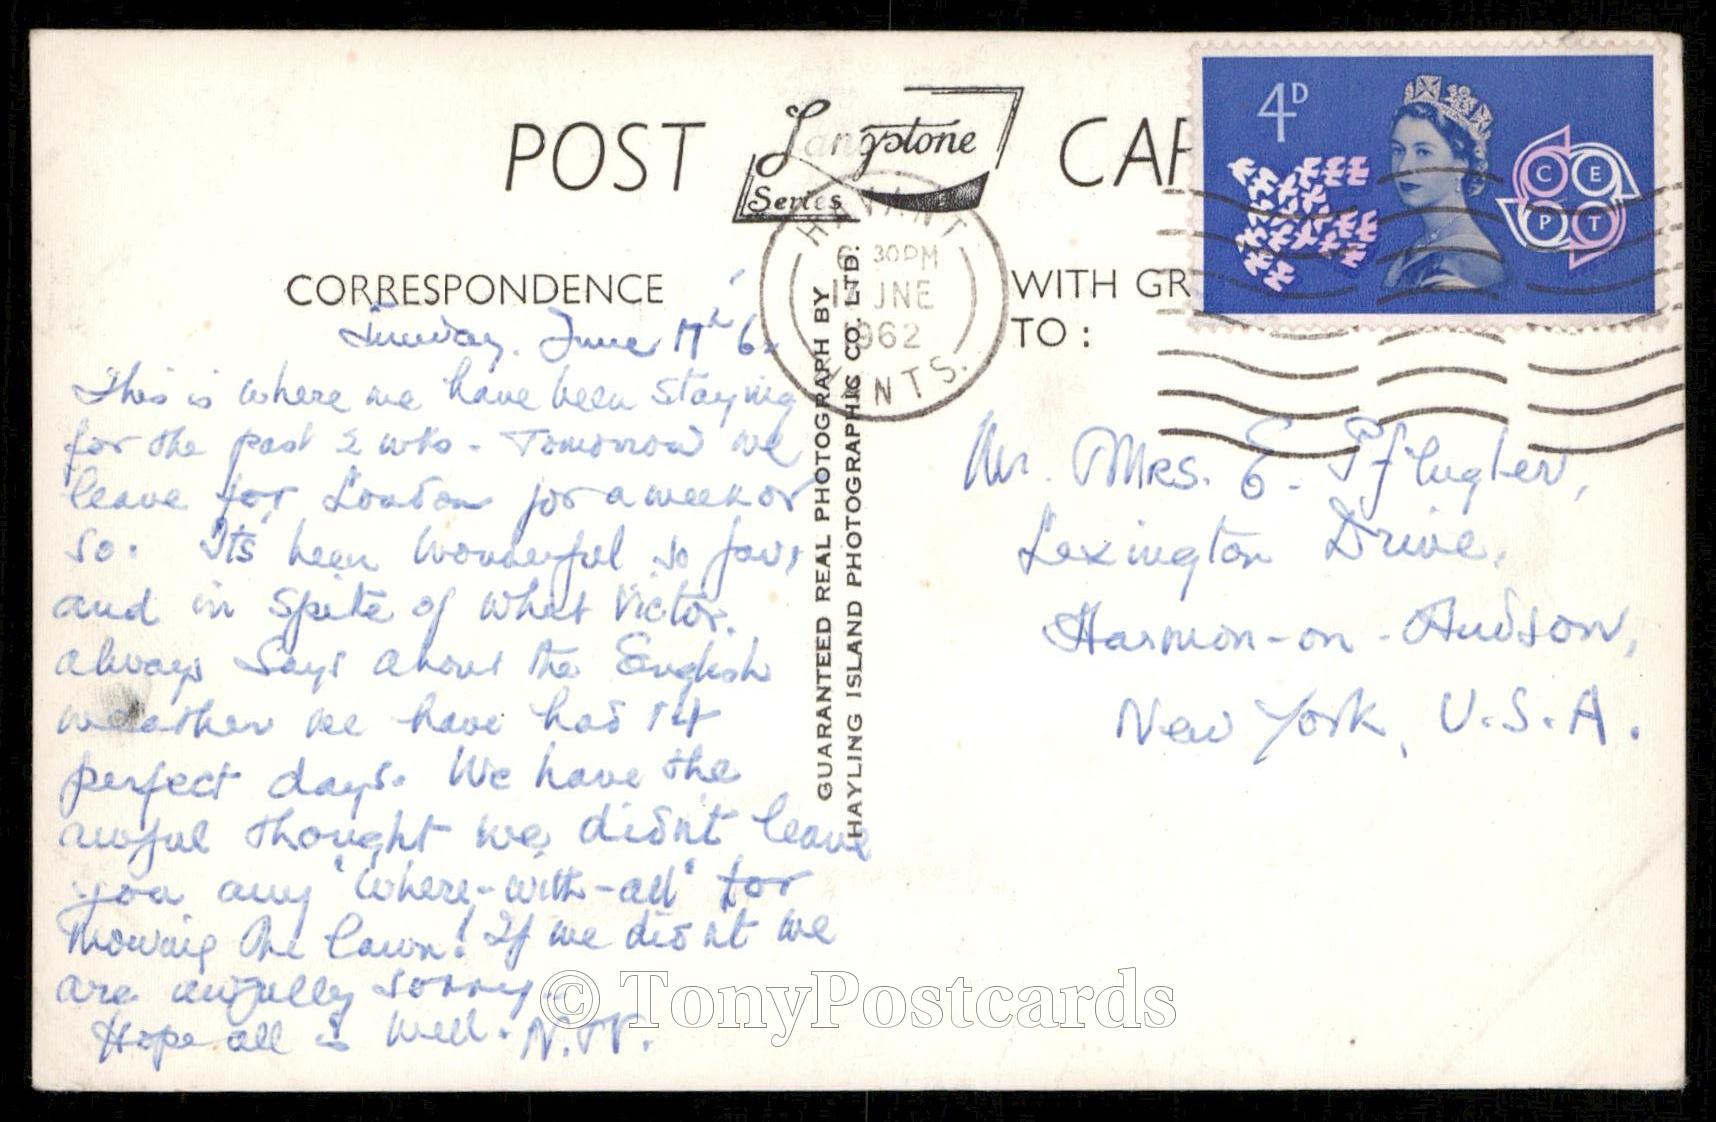 POST CAR
Langstone
Series
4D
C E
P T
HAVANT
6 30PM
17 JNE
1962
HANTS.
CORRESPONDENCE
WITH GR
TO:
GUARANTEED REAL PHOTOGRAPH BY
HAYLING ISLAND PHOTOGRAPHIC CO. LTD.
Sunday. June 17th 62
This is where we have been staying
for the past 2 wks - Tomorrow we
leave for London for a week or
so. It's been wonderful so far,
and in spite of what Victor.
always says about the English
weather we have had 14
perfect days. We have the
awful thought we didn't leave
you any "where-with-all" for
mowing the lawn! If we didn't we
are awfully sorry -
Hope all is well. N.
Mr. Mrs. E.
Lexington Drive,
Harmon-on-Hudson,
New York, U.S.A.
© TonyPostcards